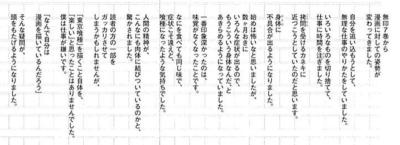 無印7巻から
漫画に対しての姿勢が
変わってきました。
自分を追い込もうとして、
無理な仕事のやりかたをしていました。
いろいろなものを切り捨てて、
仕事に時間を注ぎました。
拷問を受けるカネキに
近づこうとしていたのだと思います。
身体に
不具合が出るようになりました。
始めは怖いなと思いましたが、
数ヶ月おきに
いろんな症状が出るので、
「こういう身体なんだ」と
あきらめるようになっていきました。
一番印象深かったのは、
味覚がなくなったことです。
なにを食べても同じ味で、
症状こそ違えど、
喰種になったような気持ちでした。
人間の精神が、
こんなにも肉体に結びついているのかと、
驚かされました。
読者の方の一部を
ガッカリさせて
しまうかもしれませんが
「東京喰種」を描くこと自体を、
「楽しい」と思ったことはありませんでした。
僕は仕事が嫌いです。
「なんで自分は
漫画を描いているんだろう」
そんな疑問が、
頭をもたげるようになりました。